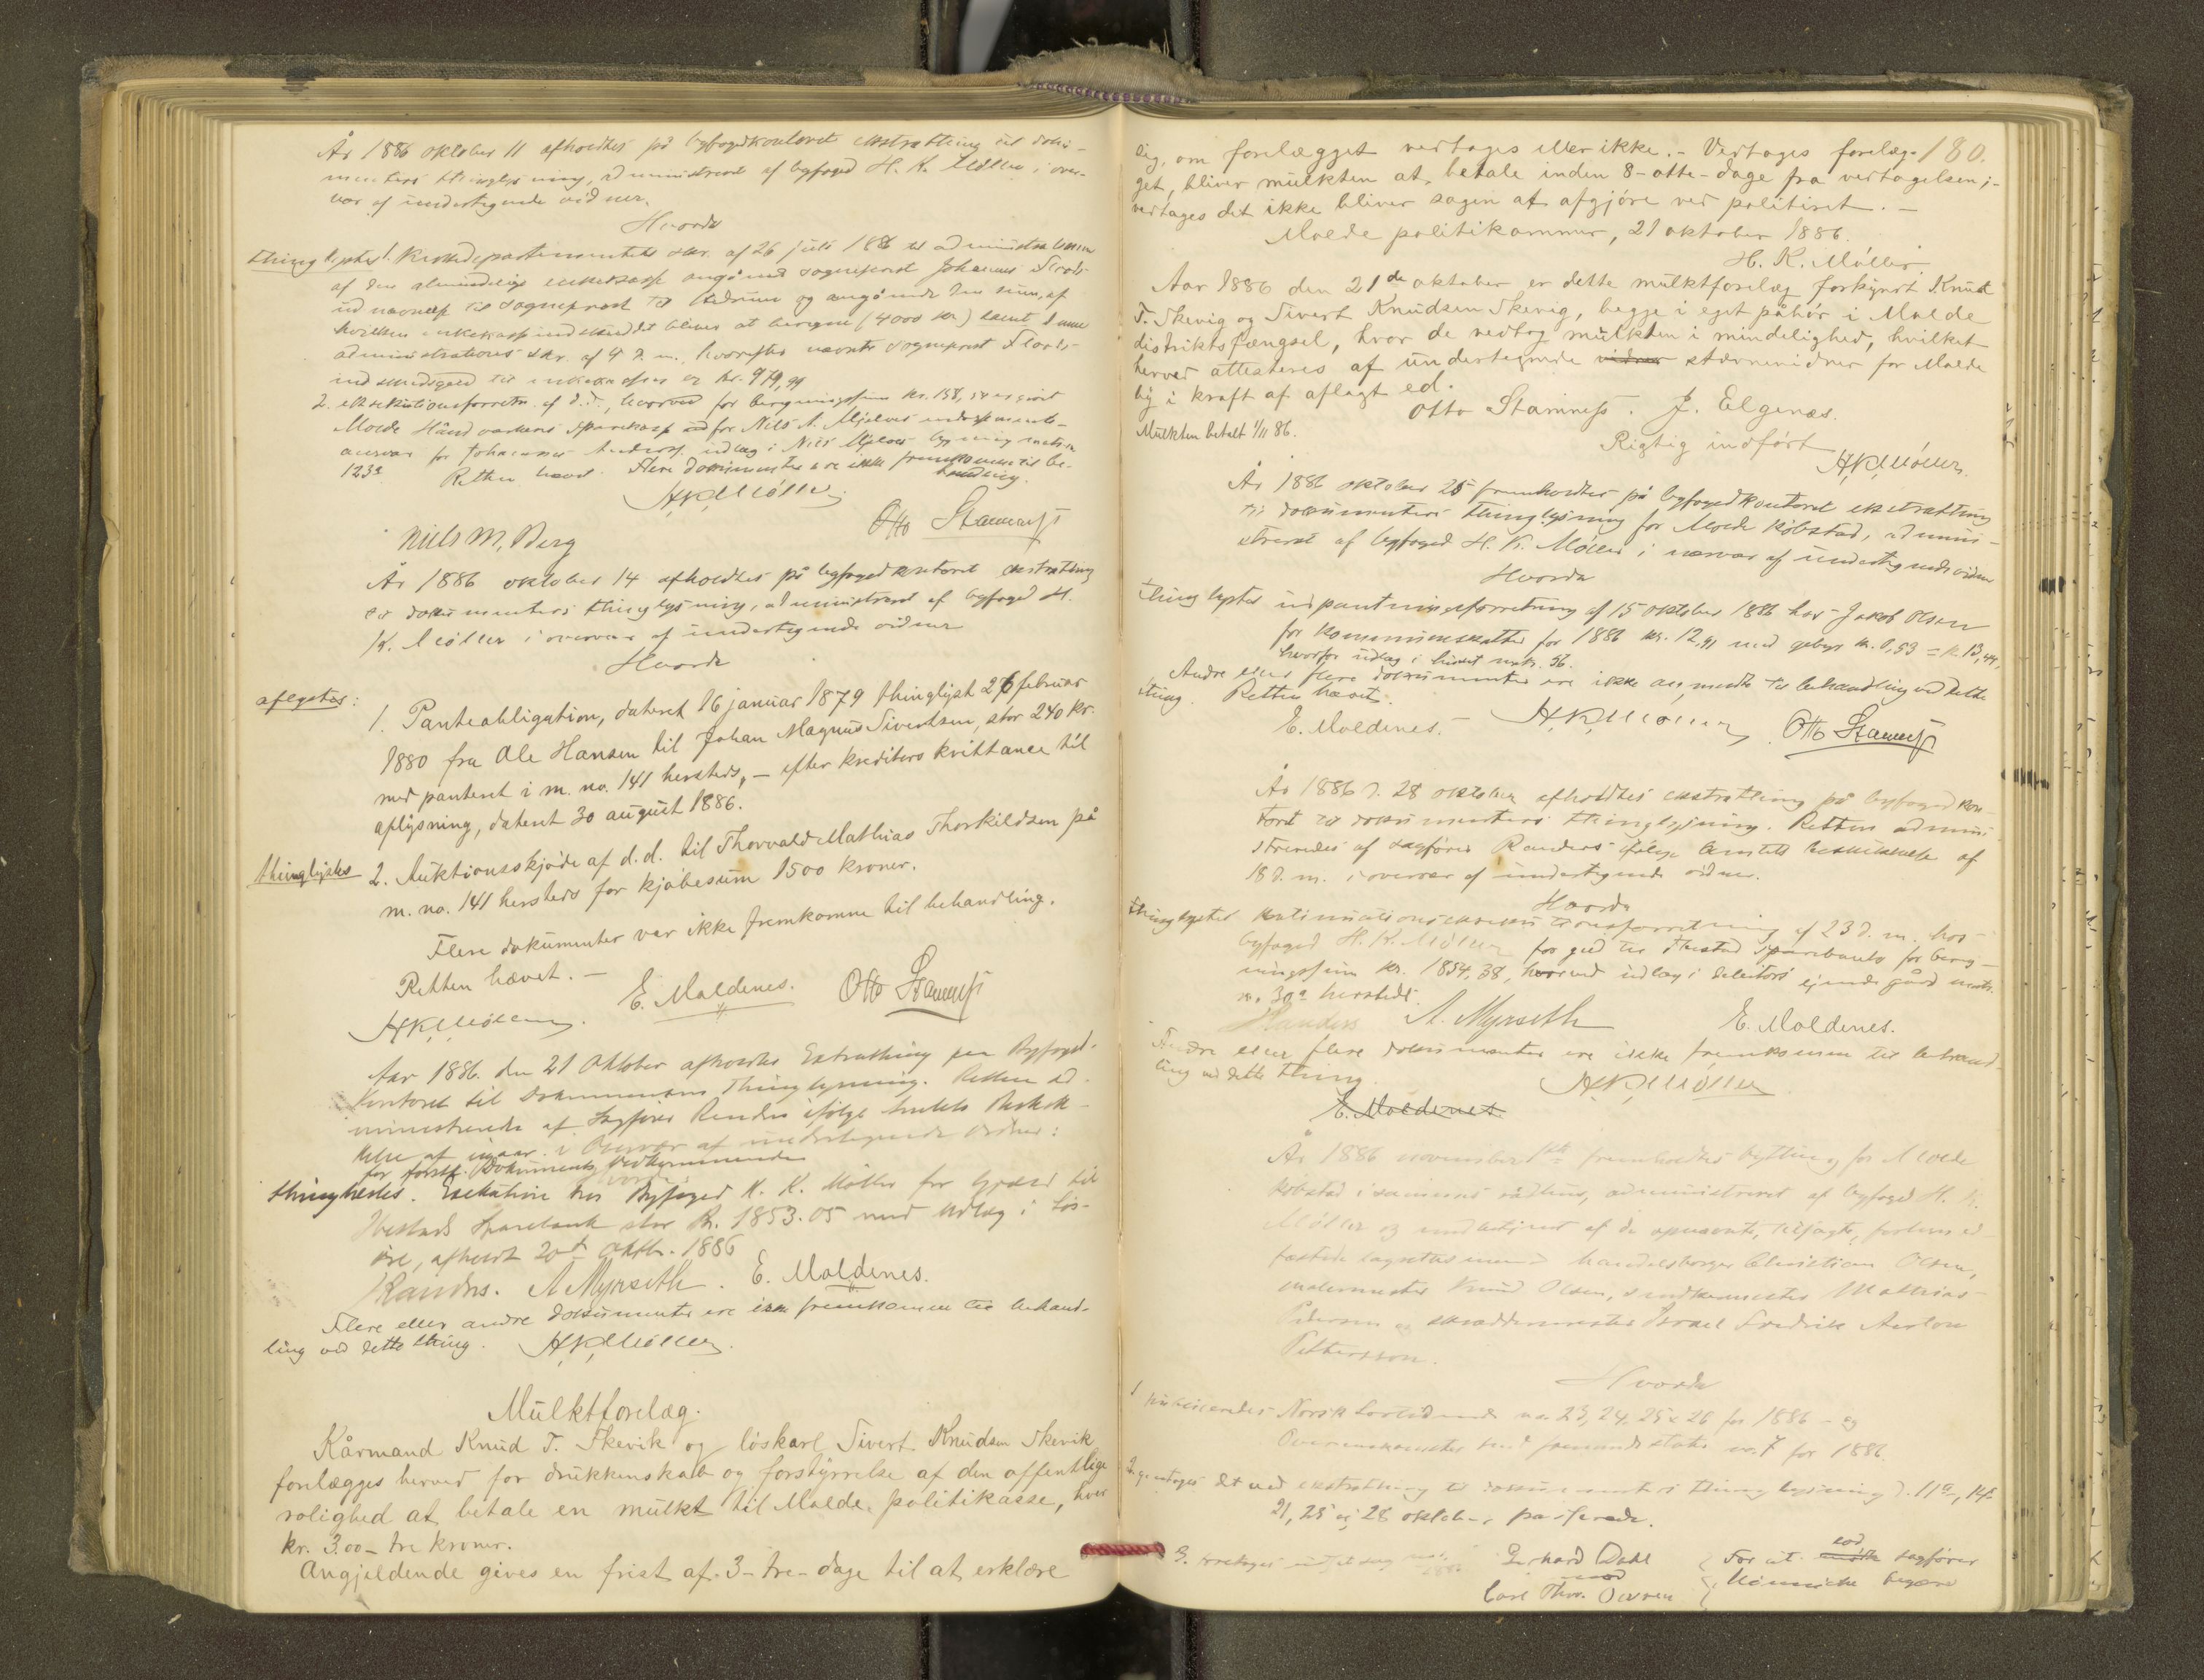 År 1886 oktober 11 afholdtes på byfogedkontoret ekstratting til doku-
menters thinglysning, administreret af byfoged H. K. Møller i over-
vær af undertegnede vidner.
Hvorda
thinglystes 1. Kirkedepartementets skr. af 26 juli 1886 til administrationen
af den almindelige enkekasse angående sogneprest Johannes
udnævnelse til sogneprest til og angående den sum, af
hvilken enkekasseindskuddet bliver at beregne (4000 kr.) samt
administrations skr. af 4 d. m., hvorefter nævnte sogneprest
indskudsgæld til enkekassen er kr. 979,99
2. eksekutionsforretn. af d.d., hvorved for
Molde Håndværkeres Sparekasse for Nils A.
ansvar for Johannes udlæg i Nils bygning matr. n.
123a Retten hævet. Flere dokumenter ere ikke fremkomne til be-
handling.
HKMöller
Niels M. Berg Otto Stamness
År 1886 oktober 14 afholdtes på byfogedkontoret ekstratting
til dokumenters thinglysning, administreret af byfoged H.
K. Møller i overvær af undertegnede vidner
Hvorda
aflystes:
1. Panteobligation, dateret 16 januar 1879 thinglyst 26 februar
1880 fra Ole Hansen til Johan Magnus Sivertsen, stor 240 kr.
med panteret i m. no. 141 hersteds, – efter kreditors kvittance til
aflysning, dateret 30 august 1886.
thinglystes 2. Auktionsskjøde af d.d. til Thorvald Mathias Thorkildsen på
m. no. 141 hersteds for kjøbesum 1500 kroner.
Flere dokumenter var ikke fremkomne til behandling.
Retten hævet. –
HKMöller. E. Moldenes. Otto Stamness
Aar 1886. den 21 Oktober afholdtes Extrathing paa Byfoged-
Kontoret til Dokumenters Thinglysning. Retten ad-
ministreredes af Sagfører Randers ifølge Amtets Beskik-
kelse af igaar i Overvær af undertegnede Vidner:
for førstk. Dokuments Vedkommende
Hvorda:
thinglæstes. Exekution hos Byfoged H. K. Møller for Gjæld til
Ibestads Sparebank stor Kr. 1853.05 med Udlæg i Løs-
øre, afholdt 20de Oktbr. 1886
Randers. A Myrseth. E. Moldenes.
Flere eller andre dokumenter ere ikke fremkomne til behand-
ling ved dette thing. HKMöller.
Mulktforelæg.
Kårmand Knud T. Skevik og løskarl Sivert Knudsen Skevik
forelægges herved for drukkenskab og forstyrrelse af den offentlige
rolighed at betale en mulkt til Molde politikasse, hver
kr. 3.00 – tre kroner.
Angjeldende gives en frist af 3 – tre – dage til at erklære
180.
sig, om forelægget vedtages eller ikke. – Vedtages forelæg-
get, bliver mulkten at betale inden 8 – otte – dage fra vedtagelsen; –
vedtages det ikke bliver sagen at afgjøre ved politiret. –
Molde politikammer, 21 oktober 1886.
H. K. Möller.
Aar 1886 den 21de oktober er dette mulktforelæg forkyndt Knud
T. Skevig og Sivert Knudsen Skevig, begge i eget påhør i Molde
distriktsfængsel, hvor de vedtog mulkten i mindelighed, hvilket
herved attesteres af undertegnede vidner stævnevidner for Molde
by i kraft af aflagt ed.
Otto Stamness. J. Elgenæs.
Mulkten betalt 1/11 86.
Rigtig indført
HKMöller.
År 1886 oktober 25 fremholdtes på byfogedkontoret ekstratting
til dokumenters thinglysning for Molde kobstad, admini-
streret af byfoged H. K. Møller i nærvær af undertegnede vidner
Hvorda
thinglystes udpantningsforretning af 15 oktober 1886 hos Jakob Olsen
for kommuneskatter for 1886 kr. 12,91 med gebyr kr. 0,53 = kr. 13,44,
hvorfor udlæg i huset matr. 56.
Andre eller flere dokumenter ere ikke anmeldte til behandling ved dette
thing. Retten hævet.
E. Moldenes. HKMöller Otto Stamness
År 1886 d. 28 oktober afholdtes ekstratting på byfogedkon-
toret til dokumenters thinglysning. Retten admini-
streredes af sagfører Randers ifølge amtets beskikkelse af
18 d. m. i overvær af undertegnede vidner.
Hvorda
thinglystes kontinuationsexekutionsforretning af 23 d. m. hos
byfoged H. K. Møller for gjæld til Ibestad Sparebank for bereg-
ningssum kr. 1854,38, hvorved udlæg i debitors eiende gård matr.
n. 30a hersteds.
Randers A. Myrseth E. Moldenes.
Andre eller flere dokumenter ere ikke fremkomne til behand-
ling ved dette thing. HKMöller
E. Moldenes.
År 1886 november 1ste fremholdtes bytting for Molde
kobstad i sammes rådhus, administreret af byfoged H. K.
Møller og medbetjent af de opnævnte, tilsagte, forhen ed-
fæstede lagrettesmænd handelsborger Christian Olsen,
malermester Knud Olsen, snedkermester Mathias
Petersen og skræddermester Israel Fredrik
Pettersson.
Hvorda
1 publiceredes Norsk Lovtidende no. 23, 24, 25 & 26 for 1886 – og
Overenskomster med fremmede stater no. 7 for 1886.
2. gjentoges det ved ekstratting til dokumenters thinglysning d. 11te, 14de
21, 25 og 28 oktober passerede.
3. foretoges
Gerhard Dahl
mod
Carl Thor.
For cit. mødte sagfører
begæret